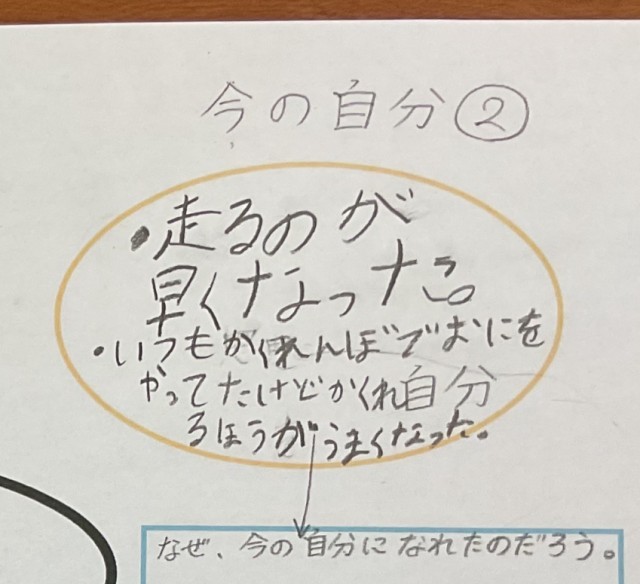 今の自分②
・走るのが
早くなった。
・いつもかくれんぼでおにを
やってたけどかくれ自分
るほうがうまくなった。
なぜ、今の自分になれたのだろう。